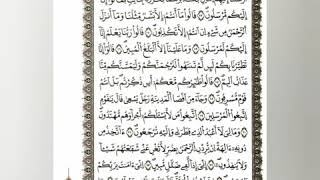 إِلَيْكُم مُّرْسَلُونَ ١٤ قَالُوا۟ مَآ أَنتُمْ إِلَّا بَشَرٌ مِّثْلُنَا وَمَآ أَنزَلَ
ٱلرَّحْمَٰنُ مِن شَىْءٍ إِنْ أَنتُمْ إِلَّا تَكْذِبُونَ ١٥ قَالُوا۟ رَبُّنَا يَعْلَمُ إِنَّآ
إِلَيْكُمْ لَمُرْسَلُونَ ١٦ وَمَا عَلَيْنَآ إِلَّا ٱلْبَلَٰغُ ٱلْمُبِينُ ١٧ قَالُوٓا۟
إِنَّا تَطَيَّرْنَا بِكُمْ لَئِن لَّمْ تَنتَهُوا۟ لَنَرْجُمَنَّكُمْ وَلَيَمَسَّنَّكُم مِّنَّا
عَذَابٌ أَلِيمٌ ١٨ قَالُوا۟ طَٰٓئِرُكُم مَّعَكُمْ أَئِن ذُكِّرْتُم بَلْ أَنتُمْ
قَوْمٌ مُّسْرِفُونَ ١٩ وَجَآءَ مِنْ أَقْصَا ٱلْمَدِينَةِ رَجُلٌ يَسْعَىٰ قَالَ يَٰقَوْمِ
ٱتَّبِعُوا۟ ٱلْمُرْسَلِينَ ٢٠ ٱتَّبِعُوا۟ مَن لَّا يَسْـَٔلُكُمْ أَجْرًا وَهُم مُّهْتَدُونَ ٢١
وَمَا لِىَ لَآ أَعْبُدُ ٱلَّذِى فَطَرَنِى وَإِلَيْهِ تُرْجَعُونَ ٢٢ ءَأَتَّخِذُ مِن
دُونِهِۦٓ ءَالِهَةً إِن يُرِدْنِ ٱلرَّحْمَٰنُ بِضُرٍّ لَّا تُغْنِ عَنِّى شَفَٰعَتُهُمْ شَيْـًٔا
وَلَا يُنقِذُونِ ٢٣ إِنِّىٓ إِذًا لَّفِى ضَلَٰلٍ مُّبِينٍ ٢٤ إِنِّىٓ ءَامَنتُ بِرَبِّكُمْ